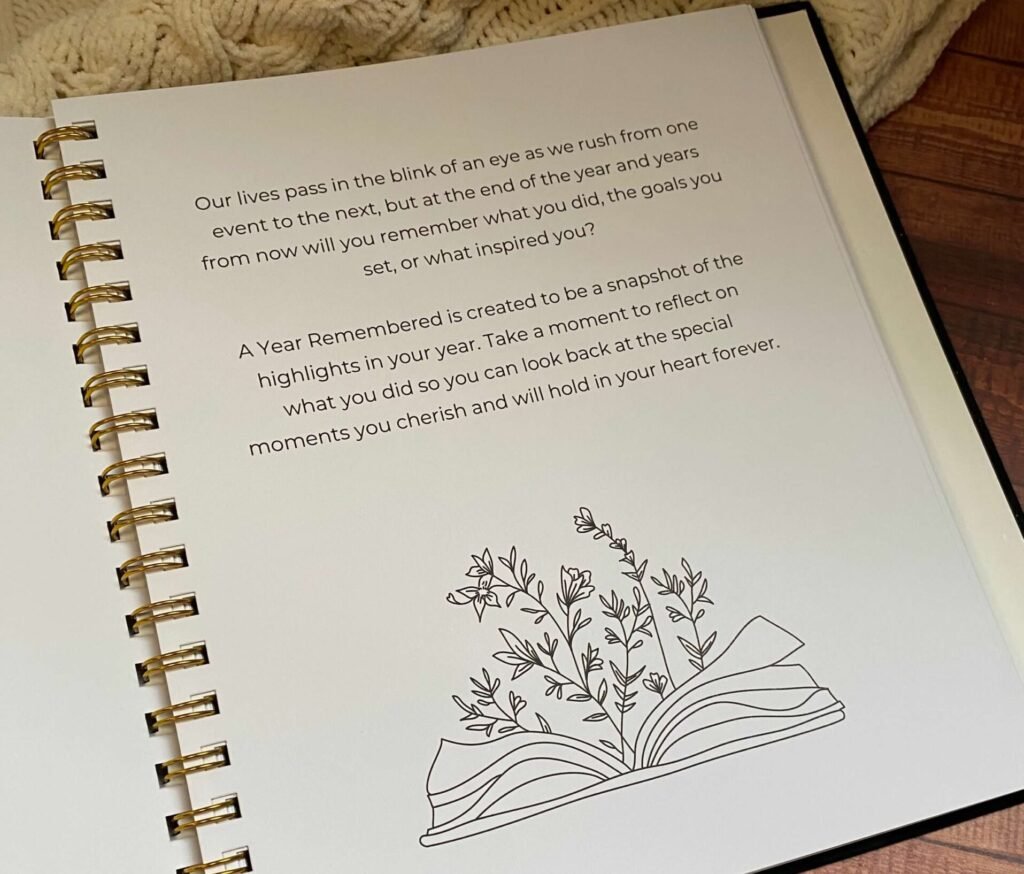 Our lives pass in the blink of an eye as we rush from one
event to the next, but at the end of the year and years
from now will you remember what you did, the goals you
set, or what inspired you?
A Year Remembered is created to be a snapshot of the
highlights in your year. Take a moment to reflect on
what you did so you can look back at the special
moments you cherish and will hold in your heart forever.